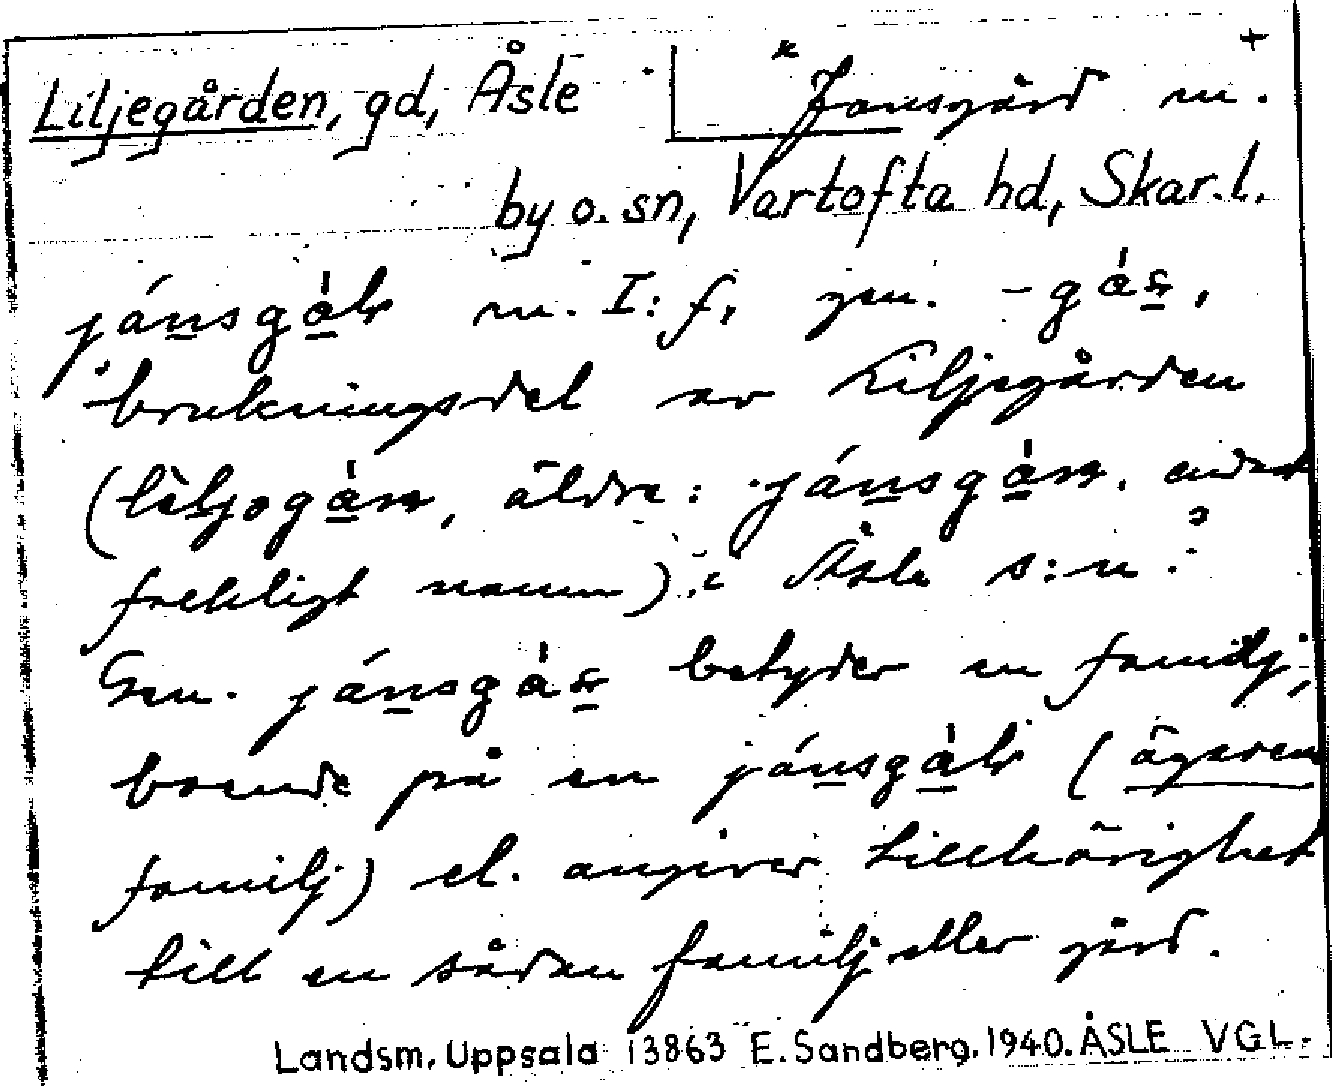 Liljegården, gd, Åsle * Jansgård m. +
by o. sn, Vartofta hd, Skar. l.
jánsgàk m. I: f, gen. -gàs,
brukningsdel av Liljegården
äldre: endast
folkligt namn) i Åsle s:n.
Gen. jánsgàs betyder en familj,
boende på en jánsgàk (ägaren
familj) el. angiver tillhörighet
till en sådan familj eller gård.
Landsm. Uppsala 13863 E. Sandberg. 1940. ÅSLE VGL.